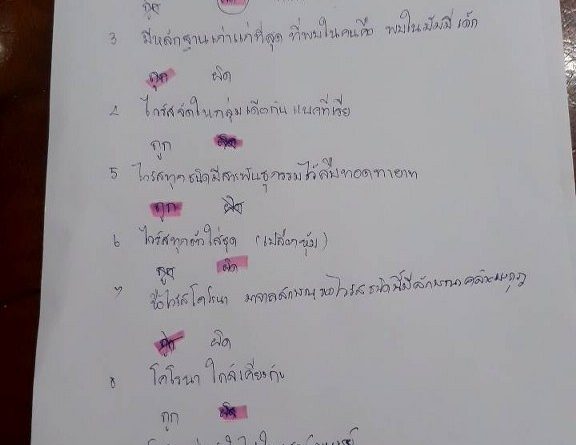 ถูก ผิด
3 มีหลักฐานเก่าแก่ที่สุด ที่พบในคนคือ พบในมัมมี่เด็ก
ถูก ผิด
4 ไวรัสจัดในกลุ่มเดียวกับแบคทีเรีย
ถูก ผิด
5 ไวรัสทุกชนิดมีสารพันธุกรรมไว้สืบทอดทายาท
ถูก ผิด
6 ไวรัสทุกตัวใส่ชุด (เปลือกหุ้ม)
ถูก ผิด
7 ชื่อไวรัสโคโรนา มาจากลักษณะของไวรัสชนิดนี้มีลักษณะคล้ายมงกุฎ
ถูก ผิด
8 โคโรนา ใกล้เคียงกับ
ถูก ผิด